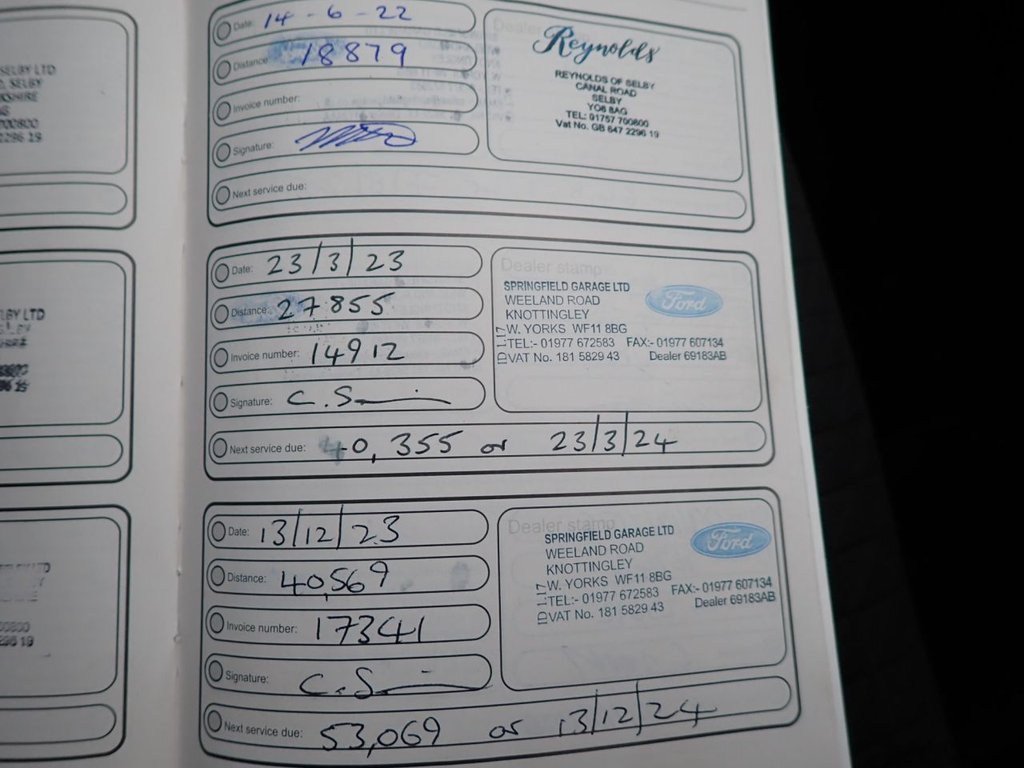 SELBY LTD
SELBY
KSHIRE
700800
2296 19
LBY LTD
96 19
Date: 14-6-22
Distance: 18879
Invoice number:
Signature:
Next service due:
Dealer
Reynolds
REYNOLDS OF SELBY
CANAL ROAD
SELBY
YO8 8AG
TEL: 01757 700800
Vat No. GB 647 2296 19
Date: 23/3/23
Distance: 27855
Invoice number: 14912
Signature: C.S
Next service due: 40,355 or 23/3/24
Dealer stamp
SPRINGFIELD GARAGE LTD
WEELAND ROAD
KNOTTINGLEY
W. YORKS WF11 8BG
TEL:- 01977 672583 FAX:- 01977 607134
VAT No. 181 5829 43 Dealer 69183AB
ID L:17
Ford
Date: 13/12/23
Distance: 40,569
Invoice number: 17341
Signature: C.S
Next service due: 53,069 or 13/12/24
Dealer stamp
SPRINGFIELD GARAGE LTD
WEELAND ROAD
KNOTTINGLEY
W. YORKS WF11 8BG
TEL:- 01977 672583 FAX:- 01977 607134
VAT No. 181 5829 43 Dealer 69183AB
ID L:17
Ford